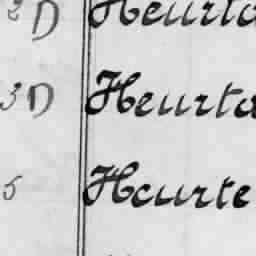 2 D Heurta
3 D Heurta
5 Heurte